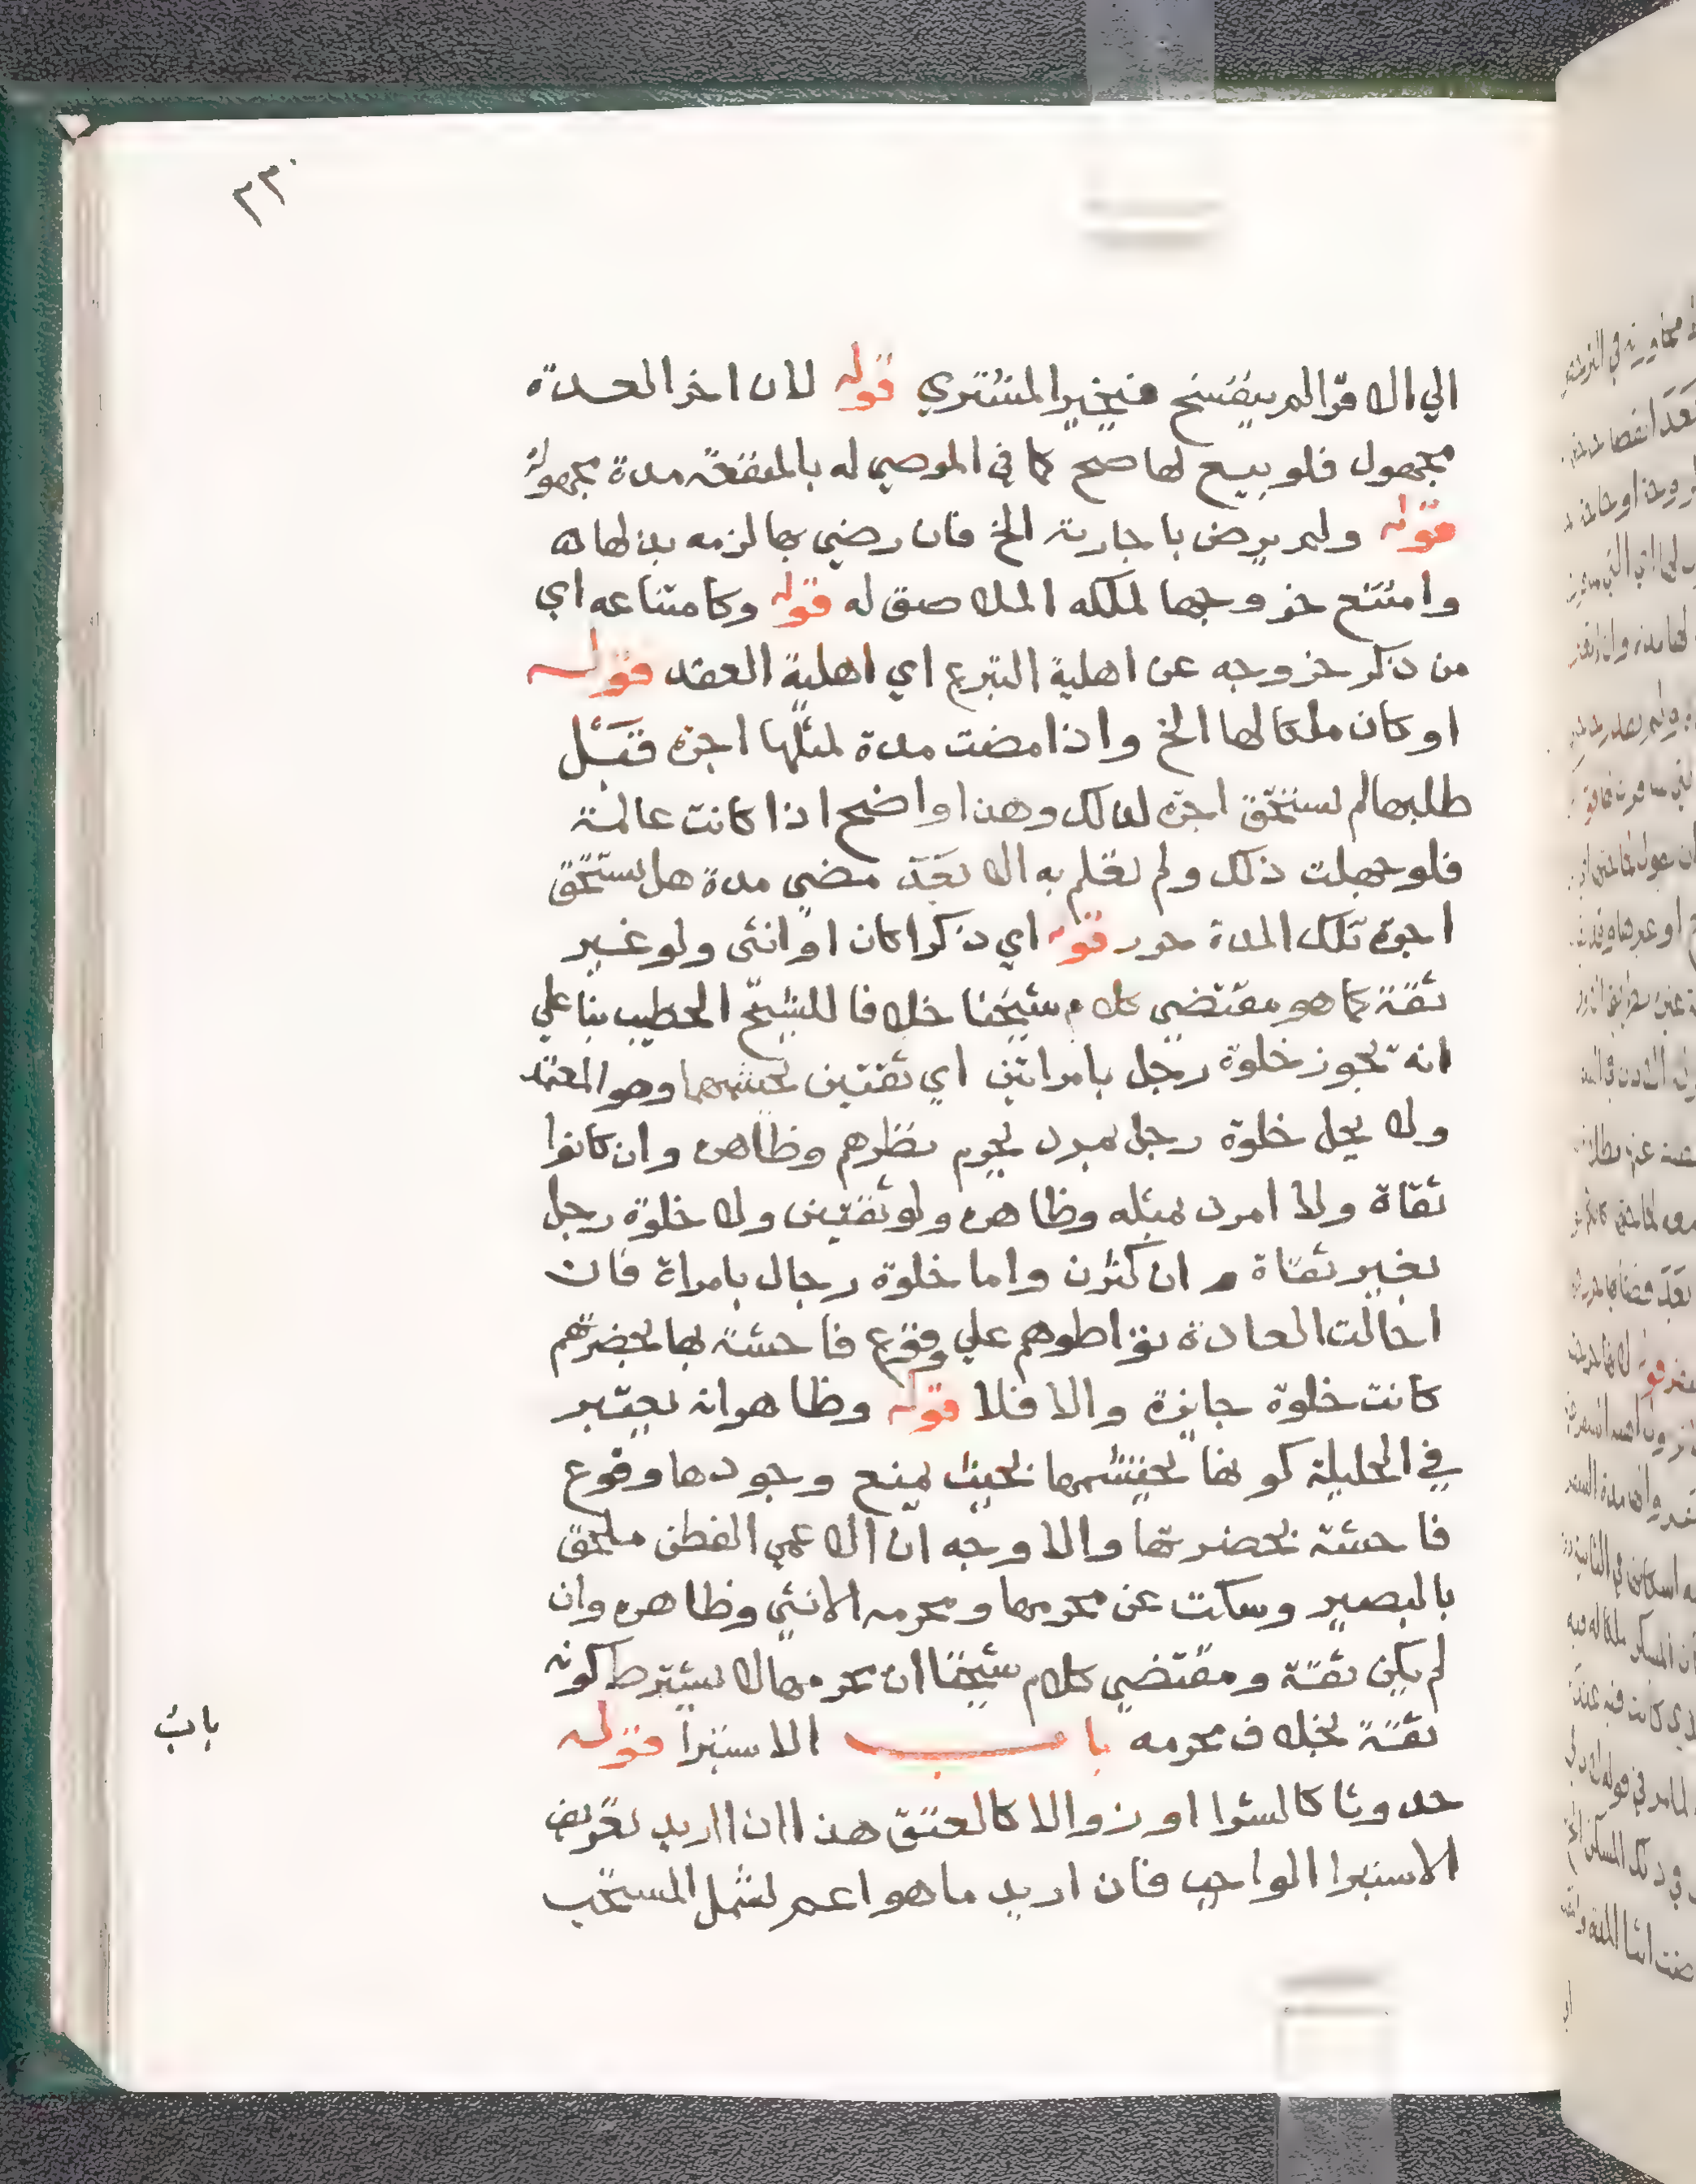 ٢٣٠
الي الاقرا لم ينفسخ فيتخير المشتري قوله لان اخر العدة
مجهول فلو بيع لها صح كما في الموصي له بالمنفعة مدة مجهولة
قوله ولم يرض باجارته الخ فان رضي بها لزمه بذلها له
وامتنع خروجها لملكه الملاصق له قوله وكامتناعه اي
من ذكر خروجه عن اهلية التبرع اي اهلية العقد قوله
او كان ملكا لها الخ واذا مضت مدة لمثلها اجرة قبل
طلبها لم تستحق اجرة لذلك وهذا واضح اذا كانت عالمة
فلو جهلت ذلك ولم تعلم به الا بعد مضي مدة هل تستحق
اجرة تلك المدة حرر قوله اي ذكرا كان او انثى ولو غير
ثقة كما هو مقتضي كلام شيخنا خلافا للشيخ الخطيب بنا علي
انه تجوز خلوة رجل بامراتين اي ثقتين يحتشمهما وهو المعتمد
ولا يحل خلوة رجل بمرد يحرم نظرهم وظاهره وان كانوا
ثقاة ولا امرد بمثله وظاهره ولو ثقتين ولا خلوة رجل
بغير ثقاة وان كثرن واما خلوة رجال بامراة فان
احالت العادة تواطوهم علي وقوع فاحشة بها بحضرتهم
كانت خلوة جايزة والا فلا قوله وظاهر انه يعتبر
في الحليلة كونها يحتشمها بحيث يمنع وجودها وقوع
فاحشة بحضرتها والاوجه ان الاعمي الفطن ملحق
بالبصير وسكت عن محرمها ومحرمه الانثي وظاهره وان
لم يكن ثقة ومقتضي كلام شيخنا ان محرمها لا يشترط كونه
ثقة بخلاف محرمه باب الاستبرا قوله
حدوثا كالشرا او زوالا كالعتق هذا ان اريد تعريف
الاستبرا الواجب فان اريد ما هو اعم ليشمل المستحب
باب